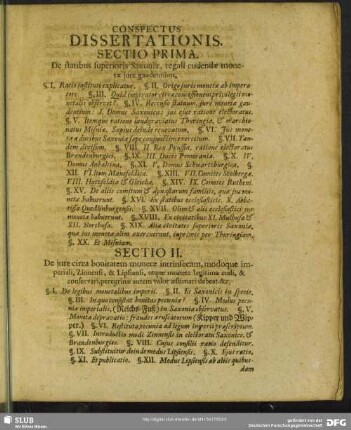 CONSPECTUS
DISSERTATIONIS.
SECTIO PRIMA.
De statibus superioris Saxoniæ, regali cudendæ mone-
tæ jure gaudentibus,
§. I. Ratio instituti explicatur. §. II. Origo juris monetæ ab impera-
tore. §. III. Quid imperator circa concessionem privilegii mo-
netalis observet? §. IV. Recensio statuum, jure monetæ gau-
dentium: I. Domus Saxonicæ; jus ejus ratione electoratus.
§. V. Itemque ratione landgraviatus Thuringiæ, & marchio-
natus Misniæ, Sæpius deinde renovatum. §. VI. Jus mone-
tæ duabus Saxoniæ
dem divisim. §. VIII. II Rex Prussiæ, ratione electoratus
Brandenburgici. §. IX. III. Ducis Pomerania. §. X. IV.
Domus Anhaltina, §. XI. V. Domus Schwartzburgica, §.
XII. VI. Mansfeldica. §. XIII. VII. Comites Stolberga.
VIII. Hatzfeldia & Gleichæ. §. XIV. IX. Comites Rutheni.
§. XV. De aliis comitum & dynastarum familiis, quæ jus mo-
netæ habuerunt. §. XVI. Ex statibus ecclesiasticis. X. Abba-
tissa Quedlinburgensis. §. XVII. Olim & alii ecclesiastici jus
monetæ habuerunt. §. XVIII. Ex civitatibus XI. Mulhusa &
XII. Northusa. §. XIX. Alia civitates superioris Saxonia,
quæ jus monetæ olim exercuerunt, inprimis per Thuringiam,
§. XX. Et Misniam.
SECTIO II.
De jure circa bonitatem monetæ intrinsecam, modoque im-
periali, Zinnensi, & Lipsiensi, atque moneta legitima cudi, &
conservari, peregrinæ autem valor æstimari debeat &c.
§. I. De legibus monetalibus imperii. §. II. Et Saxonicis in specie.
§. III. In quo consistat bonitas pecuniæ? §. IV. Modus pecu-
niæ imperialis, (Reichs-Fuß) in Saxonia observatus. §. V.
Moneta depravatio: fraudes æruscatorum (Kipper und Wip-
per.) §. VI. Restituta pecunia ad legum imperii præscriptum.
§. VII. Introductio modi Zinnensis in electoratu Saxonico, &
Brandenburgico. §. VIII. Cujus consilii ratio defenditur.
§. IX. Substituitur deinde modus Lipsiensis. §. X. Ejus ratio,
§. XI. Et publicatio. §. XII. Modus Lipsiensis ab aliis quibus-
dam
SLUB
Wir führen Wissen.
http://digital.slub-dresden.de/
gefördert von der
Deutschen Forschungsgemeinschaft
DFG